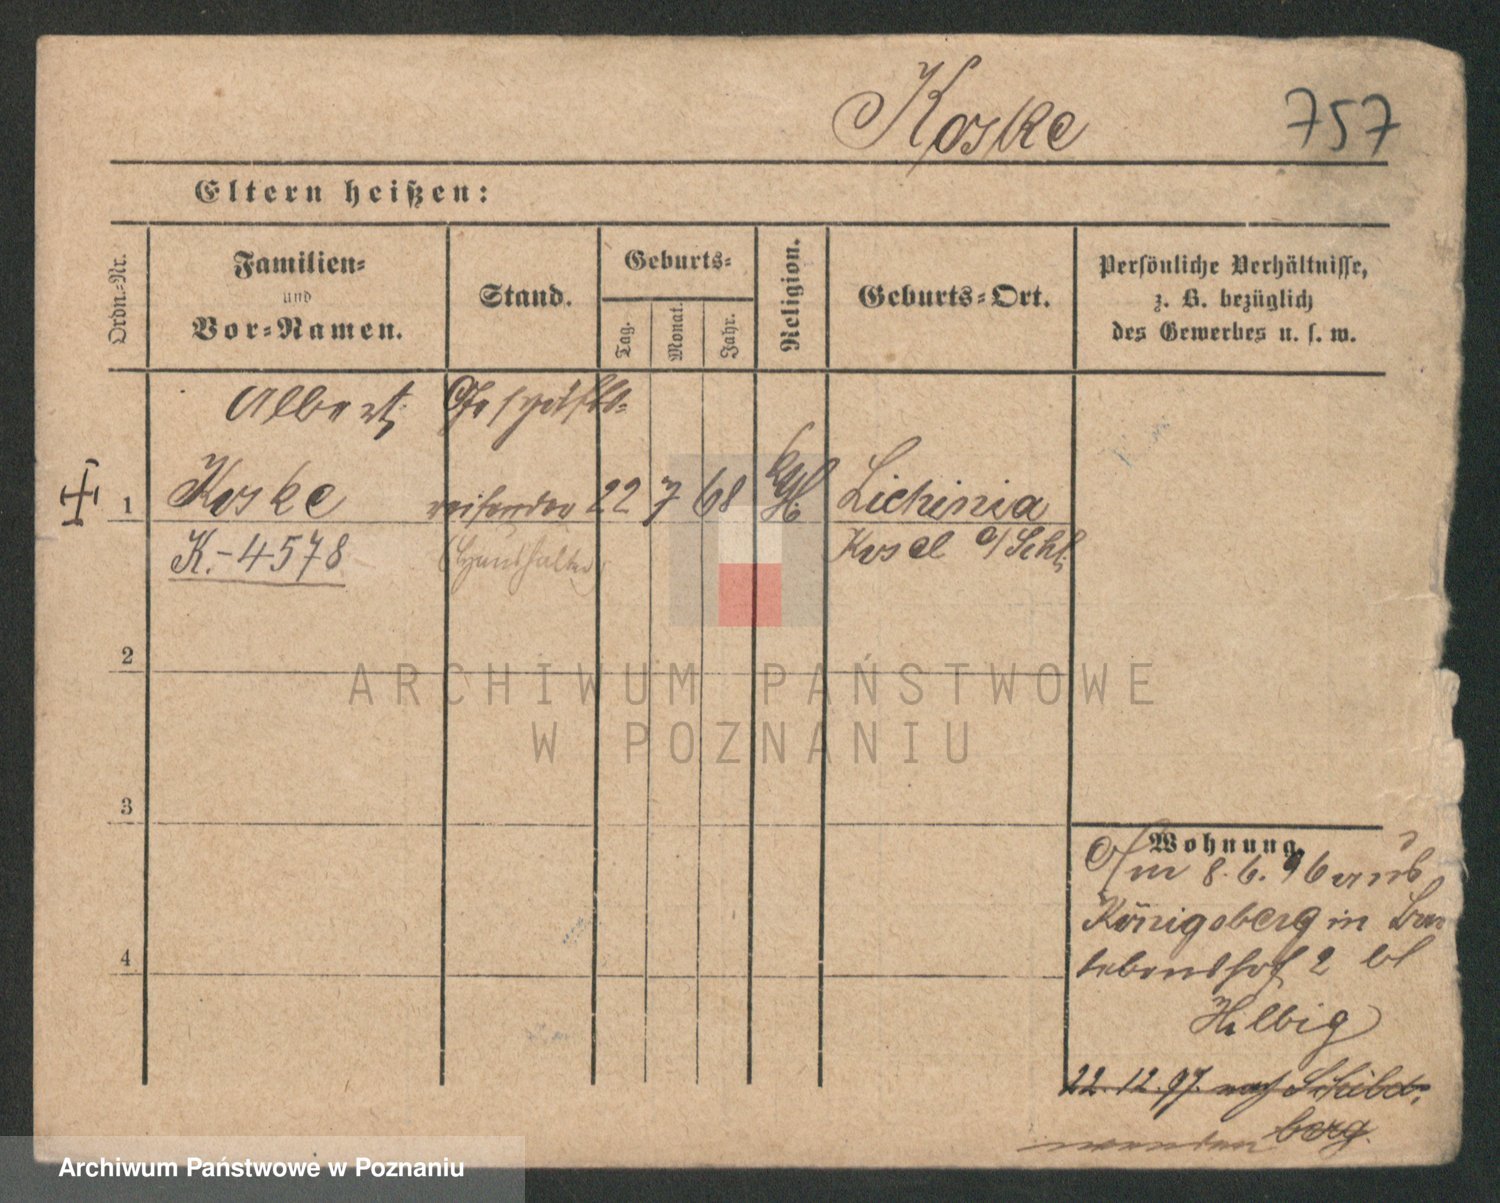 Koske
757
Eltern heißen:
Ordn.-Nr.
Familien-
und
Vor-Namen.
Stand.
Geburts-
Tag.
Monat.
Jahr.
Religion.
Geburts-Ort.
Persönliche Verhältnisse,
z. B. bezüglich
des Gewerbes u. s. w.
Albert
Geschäfts-
1
Koske
reisender
22 7 68
kath.
Lichinia
K.-4578
(Haushälter)
Kosel O/Schl.
2
ARCHIWUM PAŃSTWOWE
W POZNANIU
3
Wohnung.
Am 8.6.96 aus
Königsberg in
2 bl
4
Helbig
22.12.97. nach Schild-
berg.
wenden
Archiwum Państwowe w Poznaniu